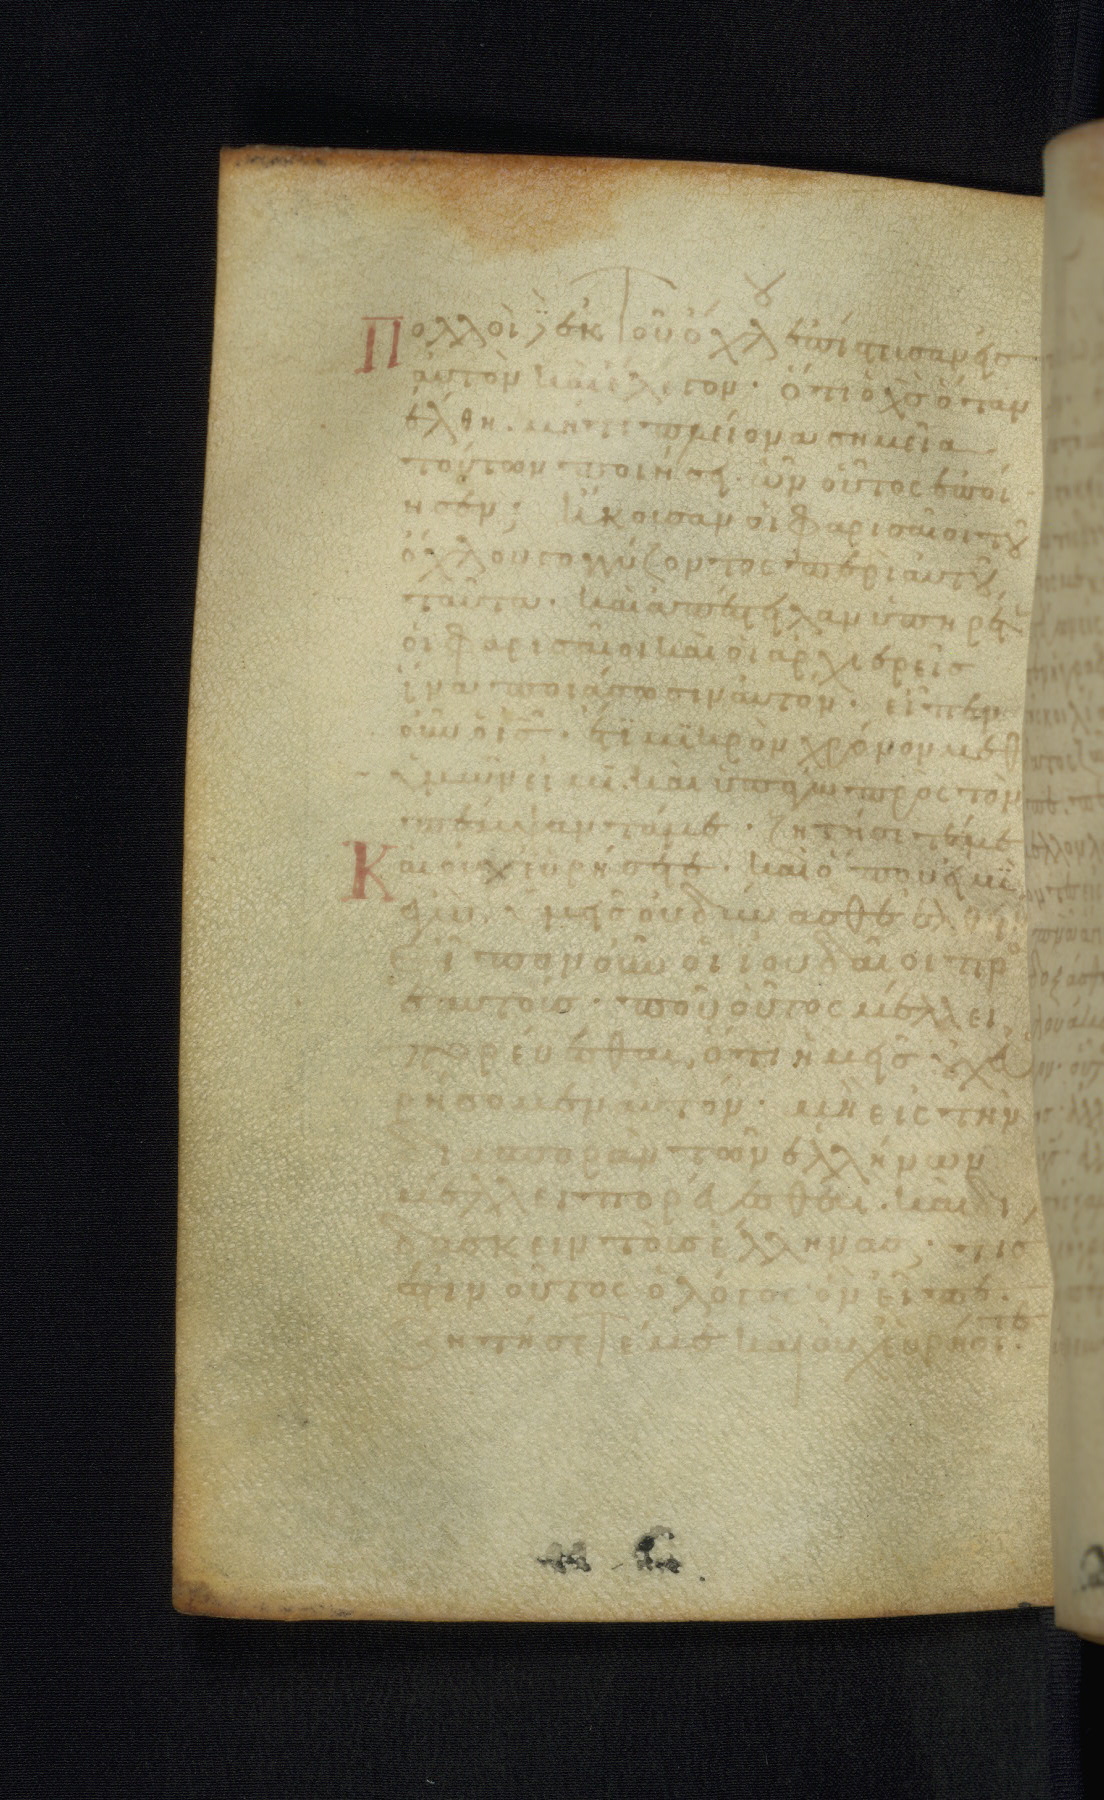 Πολλοὶ δὲ ἐκ τοῦ ὄχλου ἐπίστευσαν εἰς
αὐτὸν καὶ ἔλεγον. ὅτι ὁ χς ὅταν
ἔλθη. μήτι πλείονα σημεῖα
τούτων ποιήσει. ὧν οὗτος ἐποί
ησεν; ἤκουσαν οἱ φαρισαῖοι τοῦ
ὄχλου γογγύζοντος περὶ αὐτοῦ
ταῦτα. καὶ ἀπέστειλαν ὑπηρέτας
οἱ φαρισαῖοι καὶ οἱ ἀρχιερεῖς
ἵνα πιάσωσιν αὐτόν. εἶπεν
οὖν ὁ ις. ἔτι μικρὸν χρόνον μεθ
ὑμῶν εἰμι. καὶ ὑπάγω πρὸς τὸν
πέμψαντά με. ζητήσετέ με
Καὶ οὐχ εὑρήσετε. καὶ ὅπου εἰμὶ
ἐγὼ. ὑμεῖς οὐ δύνασθε ἐλθεῖν
εἶπον οὖν οἱ ἰουδαῖοι πρὸ
ἑαυτούς. ποῦ οὗτος μέλλει
πορεύεσθαι, ὅτι ἡμεῖς οὐχ εὑ
ρήσομεν αὐτόν. μὴ εἰς τὴν
διασπορὰν τῶν ἑλλήνων
μέλλει πορεύεσθαι. καὶ δι
δάσκειν τοὺς ἕλληνας. τίς
ἐστιν οὗτος ὁ λόγος ὃν εἶπε.
ζητήσετέ με καὶ οὐχ εὑρήσετε.